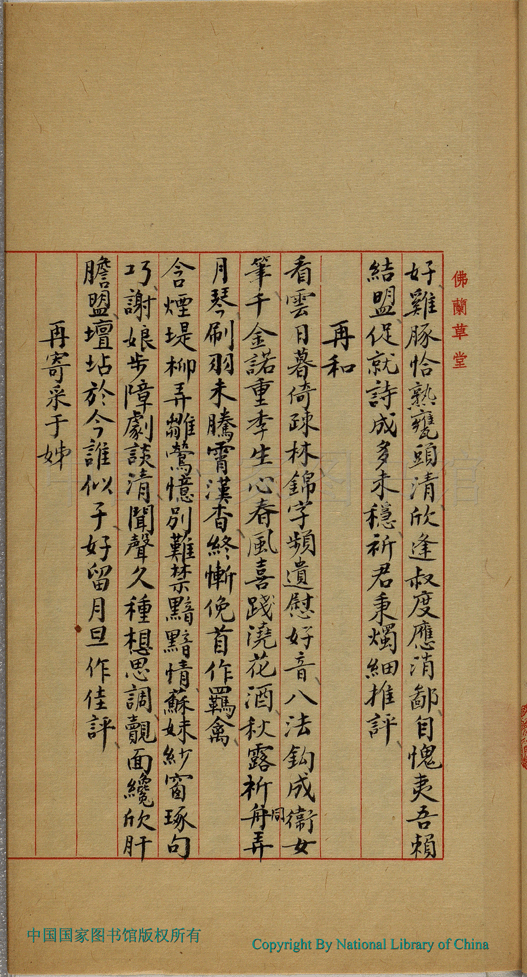 佛蘭草堂
好雞豚恰熟甕頭清欣逢叔度應消鄙自愧夷吾賴
結盟促就詩成多未穩祈君秉燭細推評
再和
看雲日暮倚疎林錦字頻遺慰好音八法鈎成衛女
筆千金諾重季生心春風喜踐澆花酒秋露祈同舟弄
月琴刷羽未騰霄漢杳終慚俛首作羈禽
含煙堤柳弄雛鶯憶別難禁黯黯情蘇妹紗窗琢句
巧謝娘步障劇談清聞聲久種想思調覿面纔欣肝
膽盟壇坫於今誰似子好留月旦作佳評
再寄采于姊
中国国家图书馆版权所有
Copyright By National Library of China